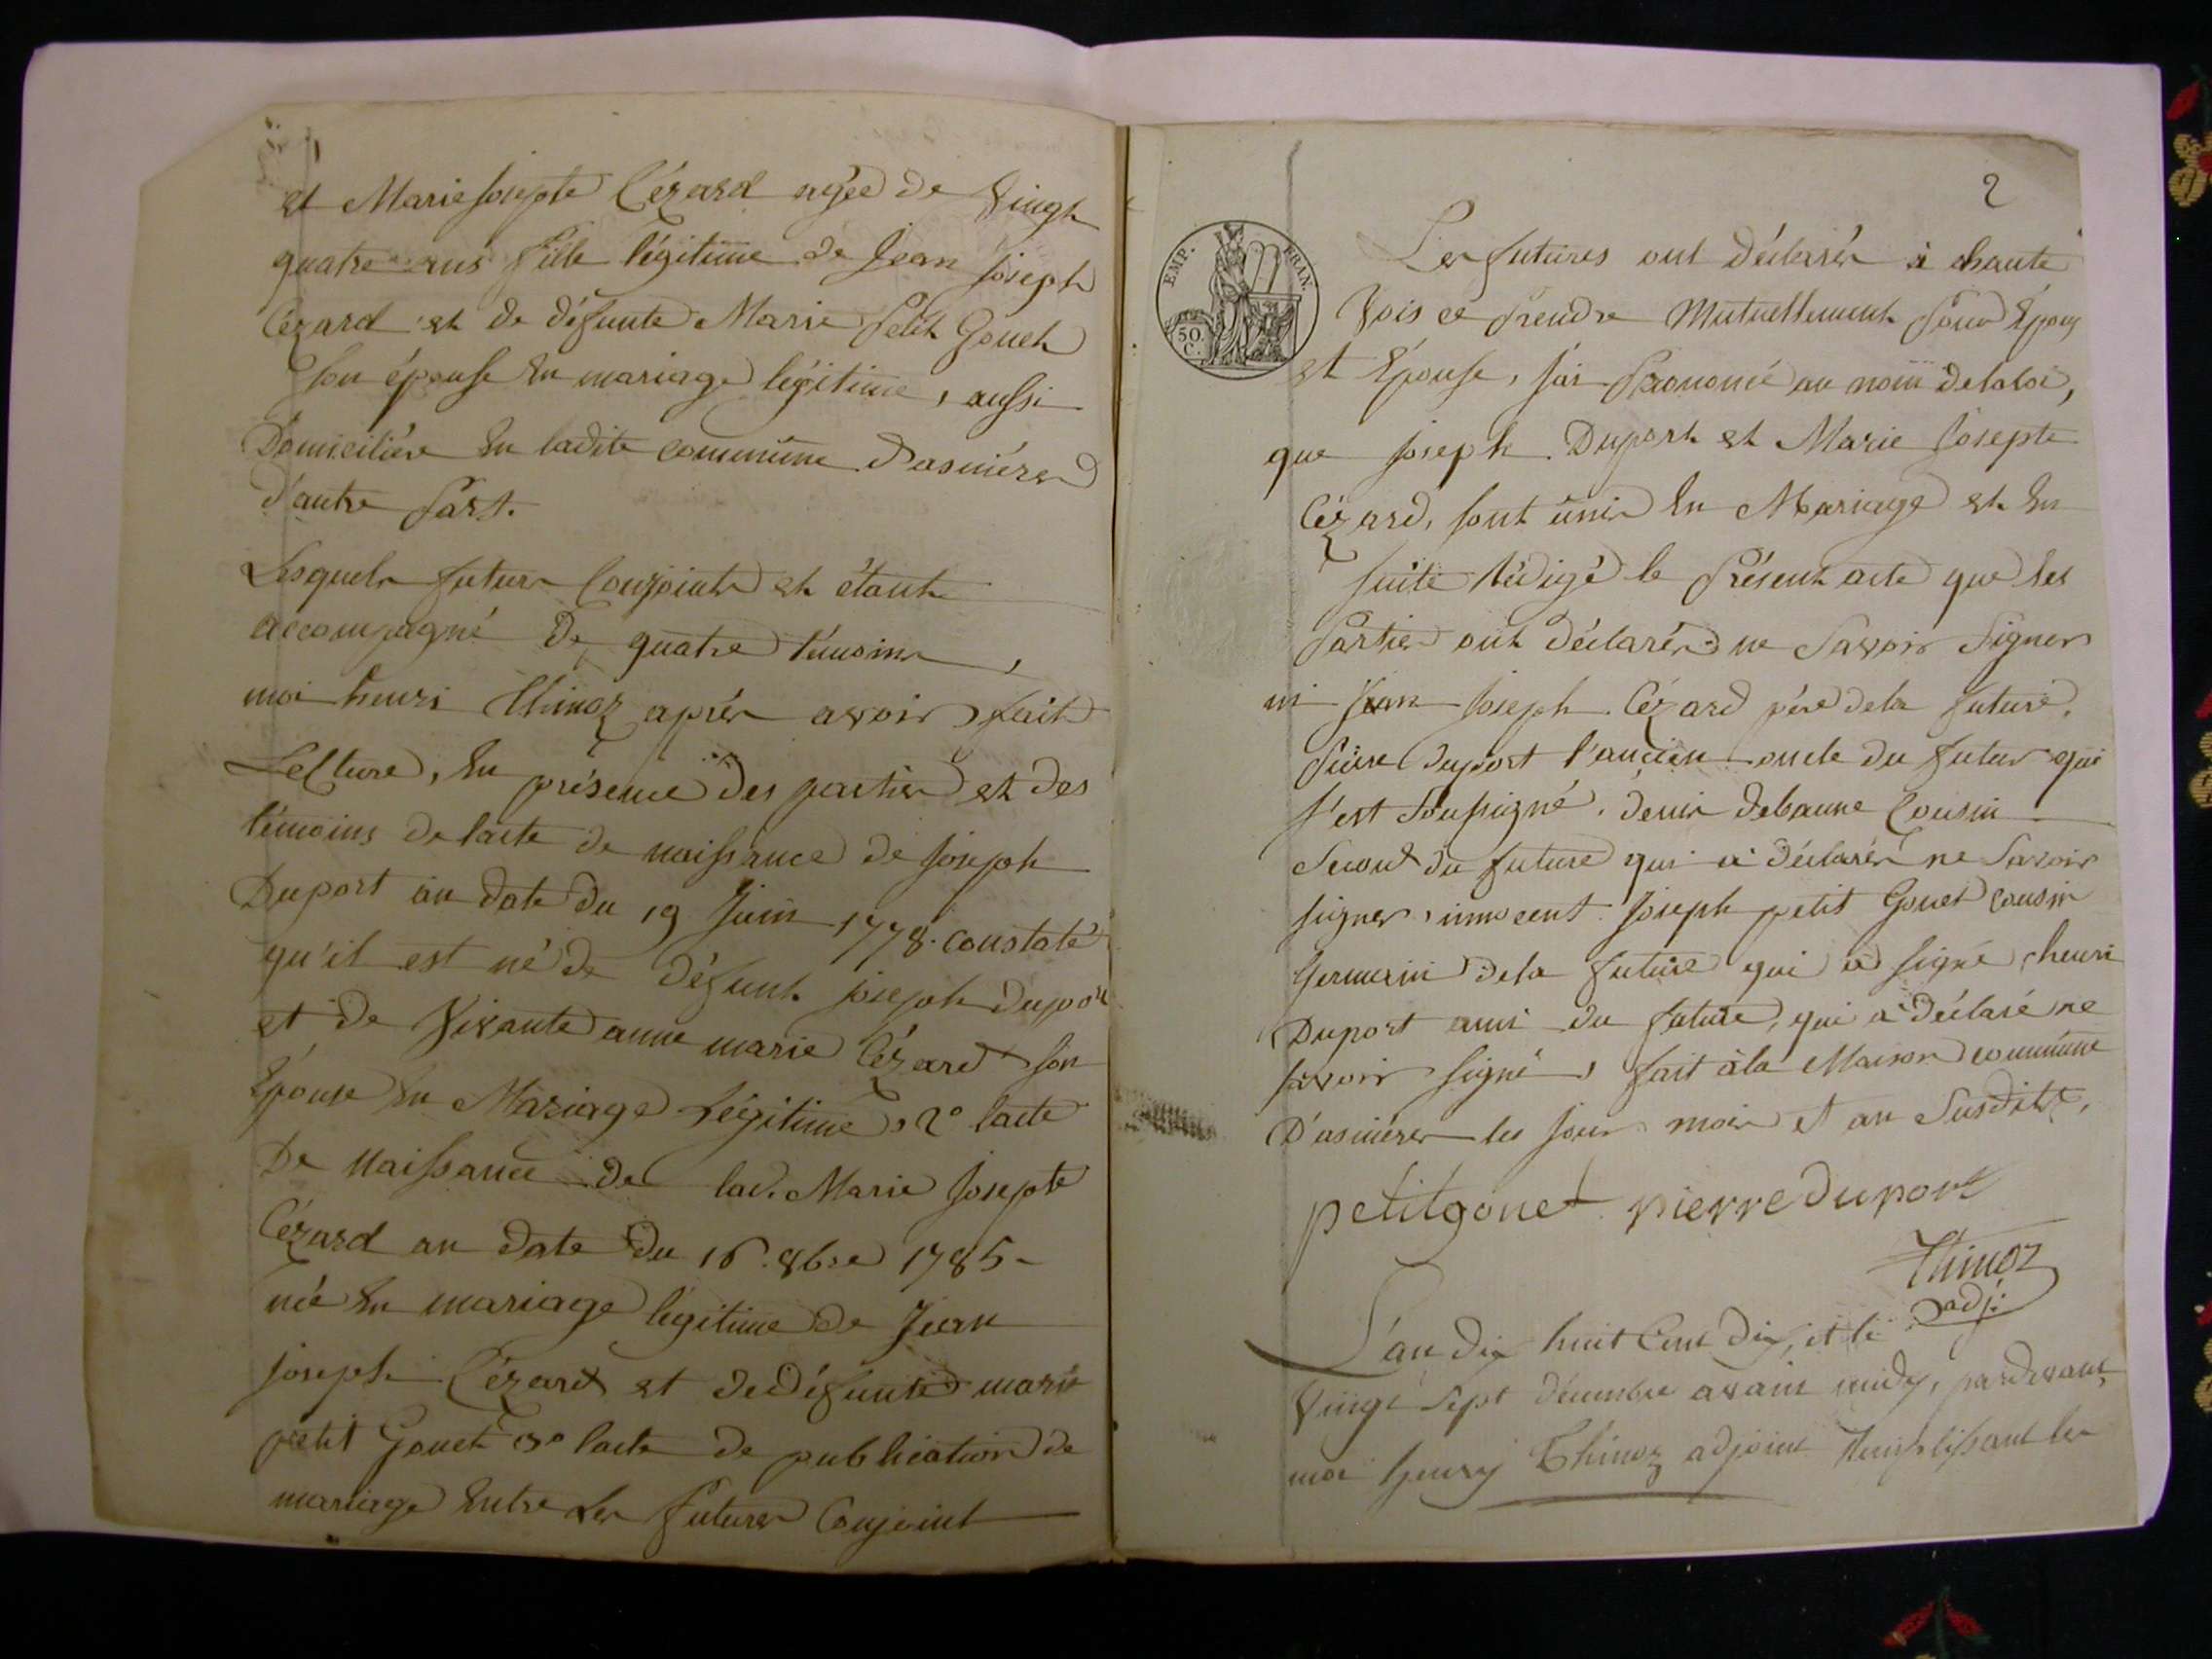 et Marie Josepte Cézard agée de vingt
quatre ans fille légitime de Jean Joseph
Cézard et de défunte Marie Petit Gouet
son épouse en mariage légitime, aussi
Domiciliée en ladite commune d'asnières
d'autre part.
Lesquels futurs conjoints et étant
accompagné de quatre témoins,
moi henri Thinoz après avoir fait
Lecture, en présence des parties et des
témoins de lacte de naissance de Joseph
Duport au date du 19 Juin 1778. constaté
qu'il est né de défunt joseph duport
et de vivante anne marie Cézard son
Epouse en Mariage Légitime, 2° lacte
De naissance de lad. Marie Josepte
Cézard au date du 16 8bre 1785 -
née en mariage légitime de Jean
joseph Cézard et de défunte marie
petit Gouet 3° lacte de publication de
mariage entre les futurs Conjoint
2
EMP. FRAN.
50. C.
Les futures ont déclarés à haute
Vois ce prendre Mutuellement pour Epoux
et Epouse, j'ai prononcé au nom de la loi,
que Joseph Duport et Marie Josepte
Cézard, sont unis en Mariage et en
suite rédigé le présent acte que les
parties ont déclarés ne Savoir Signer
ni Jean Joseph Cézard père de la future,
Pierre duport l'ancien oncle du futur qui
s'est soussigné. denis debaune Cousin
Second du future qui a déclarér ne Savoir
signer, innocent Joseph petit Gouet cousin
Germain de la future qui a signé, henri
Duport ami du future, qui a déclaré ne
savoir signé, fait à la Maison commune
D'asnières les jour mois et an Susdits,
petitgouet pierre duport
Thinoz
adj:
L'an dix huit Cent dix, et le
Vingt Sept décembre avant midy, pardevant
moi henry Thinoz adjoint Remplissant les